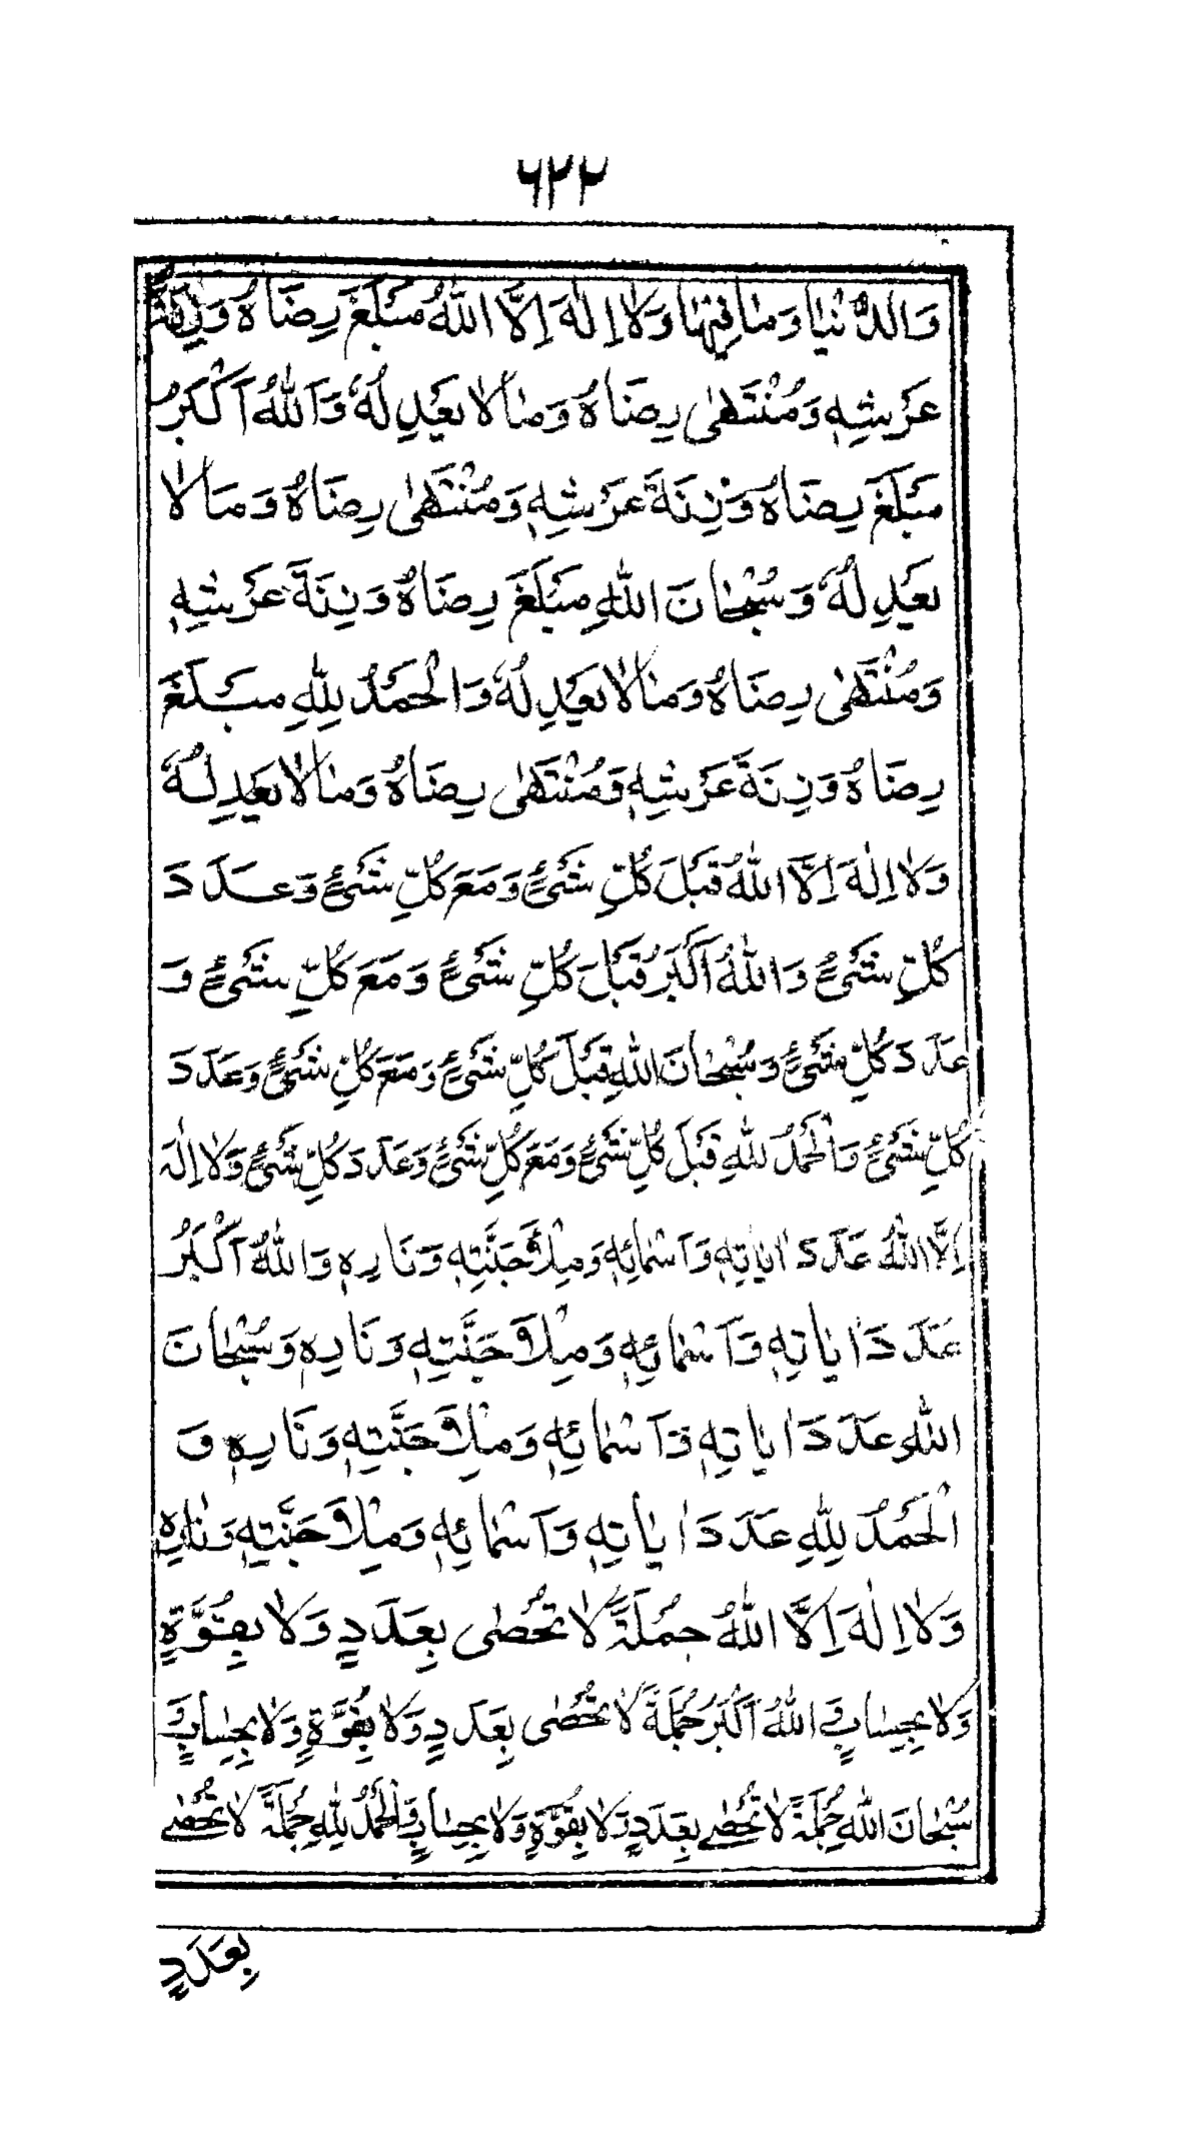 ٦٢٢
وَالدُّنْيٰا وَمٰا فيٖهٰا وَلٰا اِلٰهَ اِلَّا اللّٰهُ مَبْلَغَ رِضَاهُ وَزِنَةَ
عَرْشِهٖ وَمُنْتَهىٰ رِضَاهُ وَمٰالٰا يَعْدِلُهُ وَاَللّٰهُ اَكْبَرُ
مَبْلَغَ رِضَاهُ وَزِنَةَ عَرْشِهٖ وَمُنْتَهىٰ رِضَاهُ وَمَالٰا
يَعْدِلُهُ وَسُبْحٰانَ اللّٰهِ مَبْلَغَ رِضَاهُ وَزِنَةَ عَرْشِهٖ
وَمُنْتَهىٰ رِضَاهُ وَمٰالٰا يَعْدِلُهُ وَالْحَمْدُ لِلّٰهِ مَبْلَغَ
رِضَاهُ وَزِنَةَ عَرْشِهٖ وَمُنْتَهىٰ رِضَاهُ وَمٰالٰا يَعْدِلُهُ
وَلٰا اِلٰهَ اِلَّا اللّٰهُ قَبْلَ كُلِّ شَىْءٍ وَمَعَ كُلِّ شَىْءٍ وَعَدَدَ
كُلِّ شَىْءٍ وَاللّٰهُ اَكْبَرُ قَبْلَ كُلِّ شَىْءٍ وَمَعَ كُلِّ شَىْءٍ وَ
عَدَدَ كُلِّ شَىْءٍ وَسُبْحٰانَ اللّٰهِ قَبْلَ كُلِّ شَىْءٍ وَمَعَ كُلِّ شَىْءٍ وَعَدَدَ
كُلِّ شَىْءٍ وَالْحَمْدُ لِلّٰهِ قَبْلَ كُلِّ شَىْءٍ وَمَعَ كُلِّ شَىْءٍ وَعَدَدَ كُلِّ شَىْءٍ وَلٰا اِلٰهَ
اِلَّا اللّٰهُ عَدَدَ اٰيٰاتِهٖ وَاَسْمٰائِهٖ وَمِلْأَ جَنَّتِهٖ وَنَارِهٖ وَاللّٰهُ اَكْبَرُ
عَدَدَ اٰيٰاتِهٖ وَاَسْمٰائِهٖ وَمِلْأَ جَنَّتِهٖ وَنَارِهٖ وَسُبْحٰانَ
اللّٰهِ عَدَدَ اٰيٰاتِهٖ وَاَسْمٰائِهٖ وَمِلْأَ جَنَّتِهٖ وَنَارِهٖ وَ
الْحَمْدُ لِلّٰهِ عَدَدَ اٰيٰاتِهٖ وَاَسْمٰائِهٖ وَمِلْأَ جَنَّتِهٖ وَنٰارِهٖ
وَلٰا اِلٰهَ اِلَّا اللّٰهُ جُمْلَةً لٰا تُحْصٰى بِعَدَدٍ وَلٰا بِقُوَّةٍ
وَلٰا بِحِسٰابٍ وَ اللّٰهُ اَكْبَرُ جُمْلَةً لٰا تُحْصٰى بِعَدَدٍ وَلٰا بِقُوَّةٍ وَلٰا بِحِسٰابٍ وَ
سُبْحٰانَ اللّٰهِ جُمْلَةً لٰا تُحْصٰى بِعَدَدٍ وَلٰا بِقُوَّةٍ وَلٰا بِحِسٰابٍ وَالْحَمْدُ لِلّٰهِ جُمْلَةً لٰا تُحْصٰى
بِعَدَدٍ